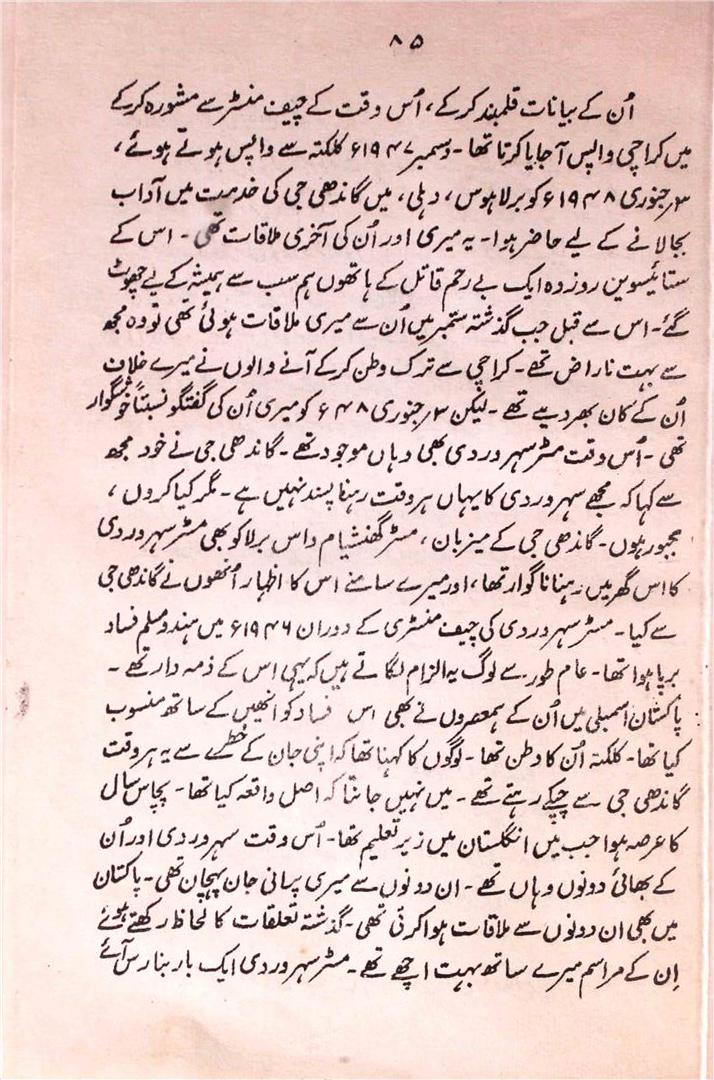 ۸۵
اُن کے بیانات قلمبند کرکے، اُس وقت کے چیف منسٹر سے مشورہ کرکے
میں کراچی واپس آجایا کرتا تھا۔ دسمبر ۱۹۴۷ء کلکتہ سے واپس ہوتے ہوئے،
۳؍جنوری ۱۹۴۸ء کو برلا ہوس، دہلی، میں گاندھی جی کی خدمت میں آداب
بجا لانے کے لیے حاضر ہوا۔ یہ میری اور اُن کی آخری ملاقات تھی۔ اس کے
ستائیسویں روز وہ ایک بے رحم قاتل کے ہاتھوں ہم سب سے ہمیشہ کے لیے چھوٹ
گئے۔ اس سے قبل جب گذشتہ ستمبر میں اُن سے میری ملاقات ہوئی تھی تو وہ مجھ
سے بہت ناراض تھے۔ کراچی سے ترک وطن کرکے آنے والوں نے میرے خلاف
اُن کے کان بھر دیے تھے۔ لیکن ۳؍جنوری ۴۸ء کو میری اُن کی گفتگو نسبتاً خوشگوار
تھی۔ اُس وقت مسٹر سہروردی بھی وہاں موجود تھے۔ گاندھی جی نے خود مجھ
سے کہا کہ مجھے سہروردی کا یہاں ہر وقت رہنا پسند نہیں ہے۔ مگر کیا کروں،
مجبور ہوں۔ گاندھی جی کے میزبان، مسٹر گھنشیام داس برلا کو بھی مسٹر سہروردی
کا اس گھر میں رہنا ناگوار تھا، اور میرے سامنے اس کا اظہار اُنھوں نے گاندھی جی
سے کیا۔ مسٹر سہروردی کی چیف منسٹری کے دوران ۱۹۴۶ء میں ہندو مسلم فساد
برپا ہوا تھا۔ عام طور سے لوگ یہ الزام لگاتے ہیں کہ یہی اس کے ذمہ دار تھے۔
پاکستان اسمبلی میں اُن کے ہمعصروں نے بھی اس فساد کو انھیں کے ساتھ منسوب
کیا تھا۔ کلکتہ اُن کا وطن تھا۔ لوگوں کا کہنا تھا کہ اپنی جان کے خطرے سے یہ ہر وقت
گاندھی جی سے چپکے رہتے تھے۔ میں نہیں جانتا کہ اصل واقعہ کیا تھا۔ پچاس سال
کا عرصہ ہوا جب میں انگلستان میں زیر تعلیم تھا۔ اُس وقت سہروردی اور اُن
کے بھائی دونوں وہاں تھے۔ ان دونوں سے میری پرانی جان پہچان تھی۔ پاکستان
میں بھی ان دونوں سے ملاقات ہوا کرتی تھی۔ گذشتہ تعلقات کا لحاظ رکھتے ہوئے
اِن کے مراسم میرے ساتھ بہت اچھے تھے۔ مسٹر سہروردی ایک بار بنارس آئے